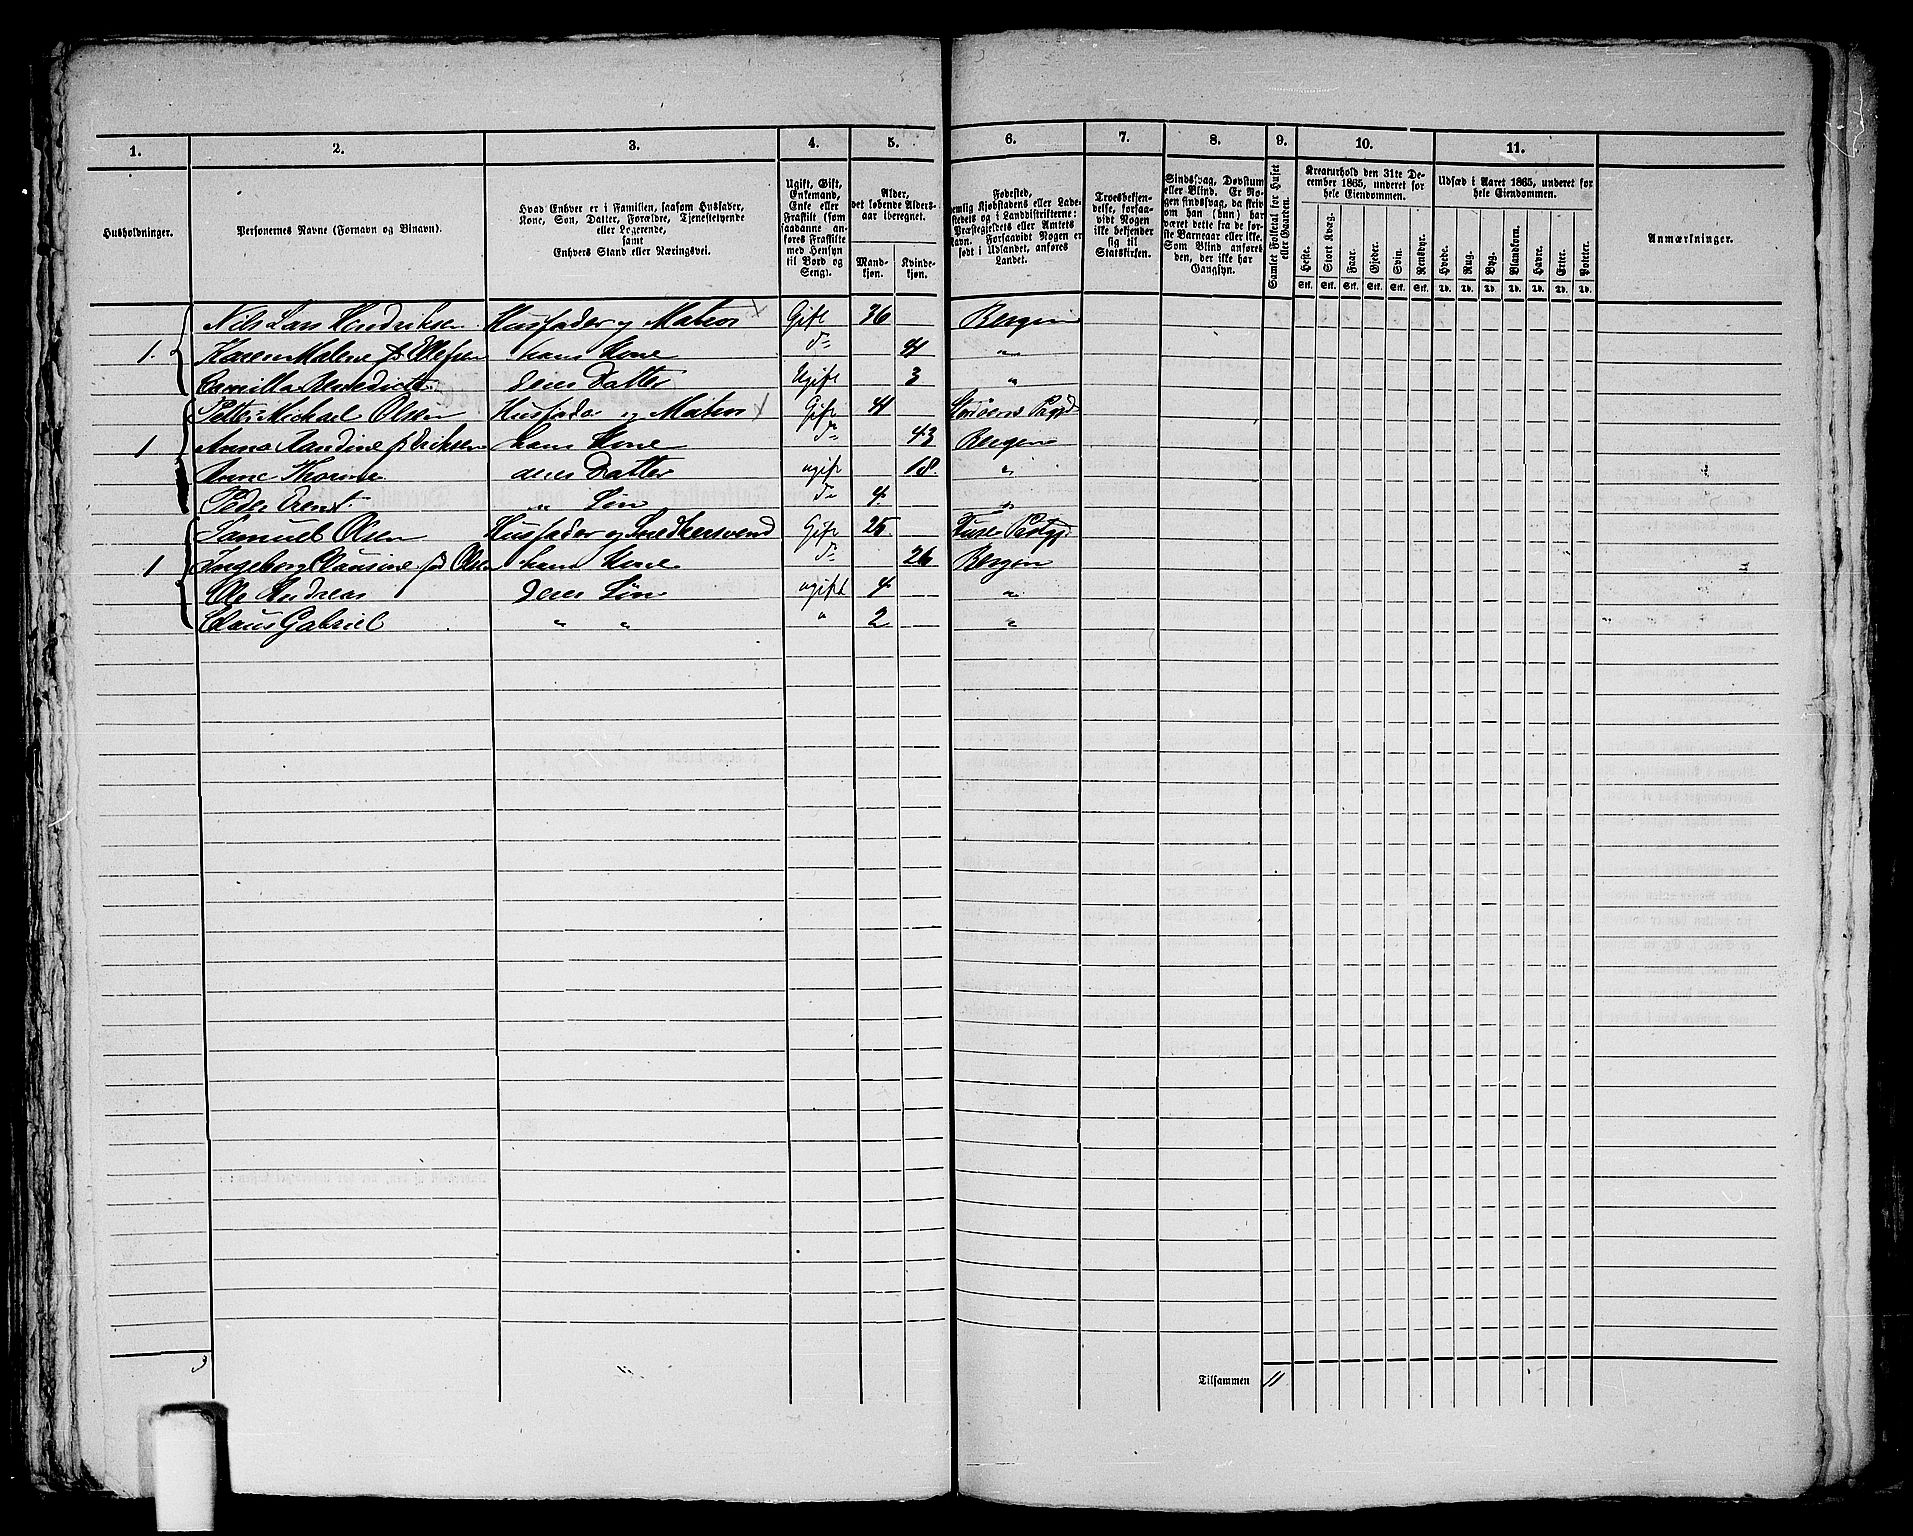 1. 2. 3. 4. 5. 6. 7. 8. 9. 10. 11.
Husholdninger.
Personernes Navne (Fornavn og Binavn).
Hvad Enhver er i Familien, saasom Husfader, Kone, Søn, Datter, Forældre, Tjenestetyende eller Logerende, samt Enhvers Stand eller Næringsvei.
Ugift, Gift, Enkemand, Enke eller Fraskilt (som saadanne anføres Fraskilte med Hensyn til Bord og Seng).
Alder, det løbende Aldersaar iberegnet.
Mandkjøn. Kvindekjøn.
Fødested, nemlig Kjøbstadens eller Ladestedets og i Landdistrikterne: Præstegjeldets eller Amtets Navn. Forsaavidt Nogen er født i Udlandet, anføres Landet.
Troesbekjendelse, forsaavidt Nogen ikke bekjender sig til Statskirken.
Sindssvag, Døvstum eller Blind. Er Nogen sindssvag, da skriv om han (hun) har været dette fra de første Barneaar eller ikke. Som Blind anføres den, der ikke har Gangsyn.
Samlet Folketal for Huset eller Gaarden.
Kreaturhold den 31te December 1865, underet for hele Eiendommen.
Heste. Stort Kvæg. Faar. Gjeder. Svin. Rensdyr.
Udsæd i Aaret 1865, underet for hele Eiendommen.
Hvede. Rug. Byg. Blandkorn. Havre. Erter. Poteter.
Anmærkninger.
Stk. Stk. Stk. Stk. Stk. Stk. Td. Td. Td. Td. Td. Td. Td.
Nils Lars Hendriksen Husfader og Matros Gift 36 Bergen
1. Karen Malene f Ellefsen hans Kone do 41 "
Camilla Benedicte deres Datter Ugift 3 "
Petter Michael Olsen Husfader og Matros Gift 41
1 Anna Randine f Eriksen hans Kone do 43 Bergen
Anne Thorine deres Datter ugift 18 "
Peder Arent " Søn do 4. "
Samuel Olsen Husfader og Snedkersvend Gift 25
1 Ingeborg Clausine fd Olsen hans Kone do 26 Bergen
Ole Andreas deres Søn ugift 4 "
Claus Gabriel " " " 2 "
3 11 Tilsammen 11